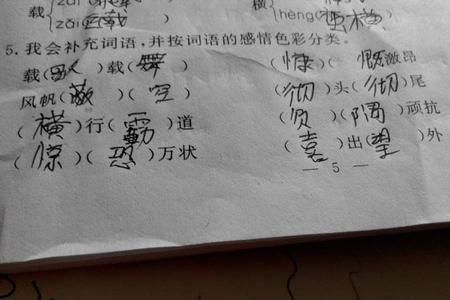 载{zǎi( 载 横{hèng(蛮横)
5.我会补充词语,并按词语的感情色彩分类。
载(歌)载(舞) (慷)(慨激昂
风帆(蔽)(空) (彻)头(彻)尾
(横)行(霸)道 (负)(隅)顽抗
(惊)(恐)万状 (喜)出(望)外
— 5 —